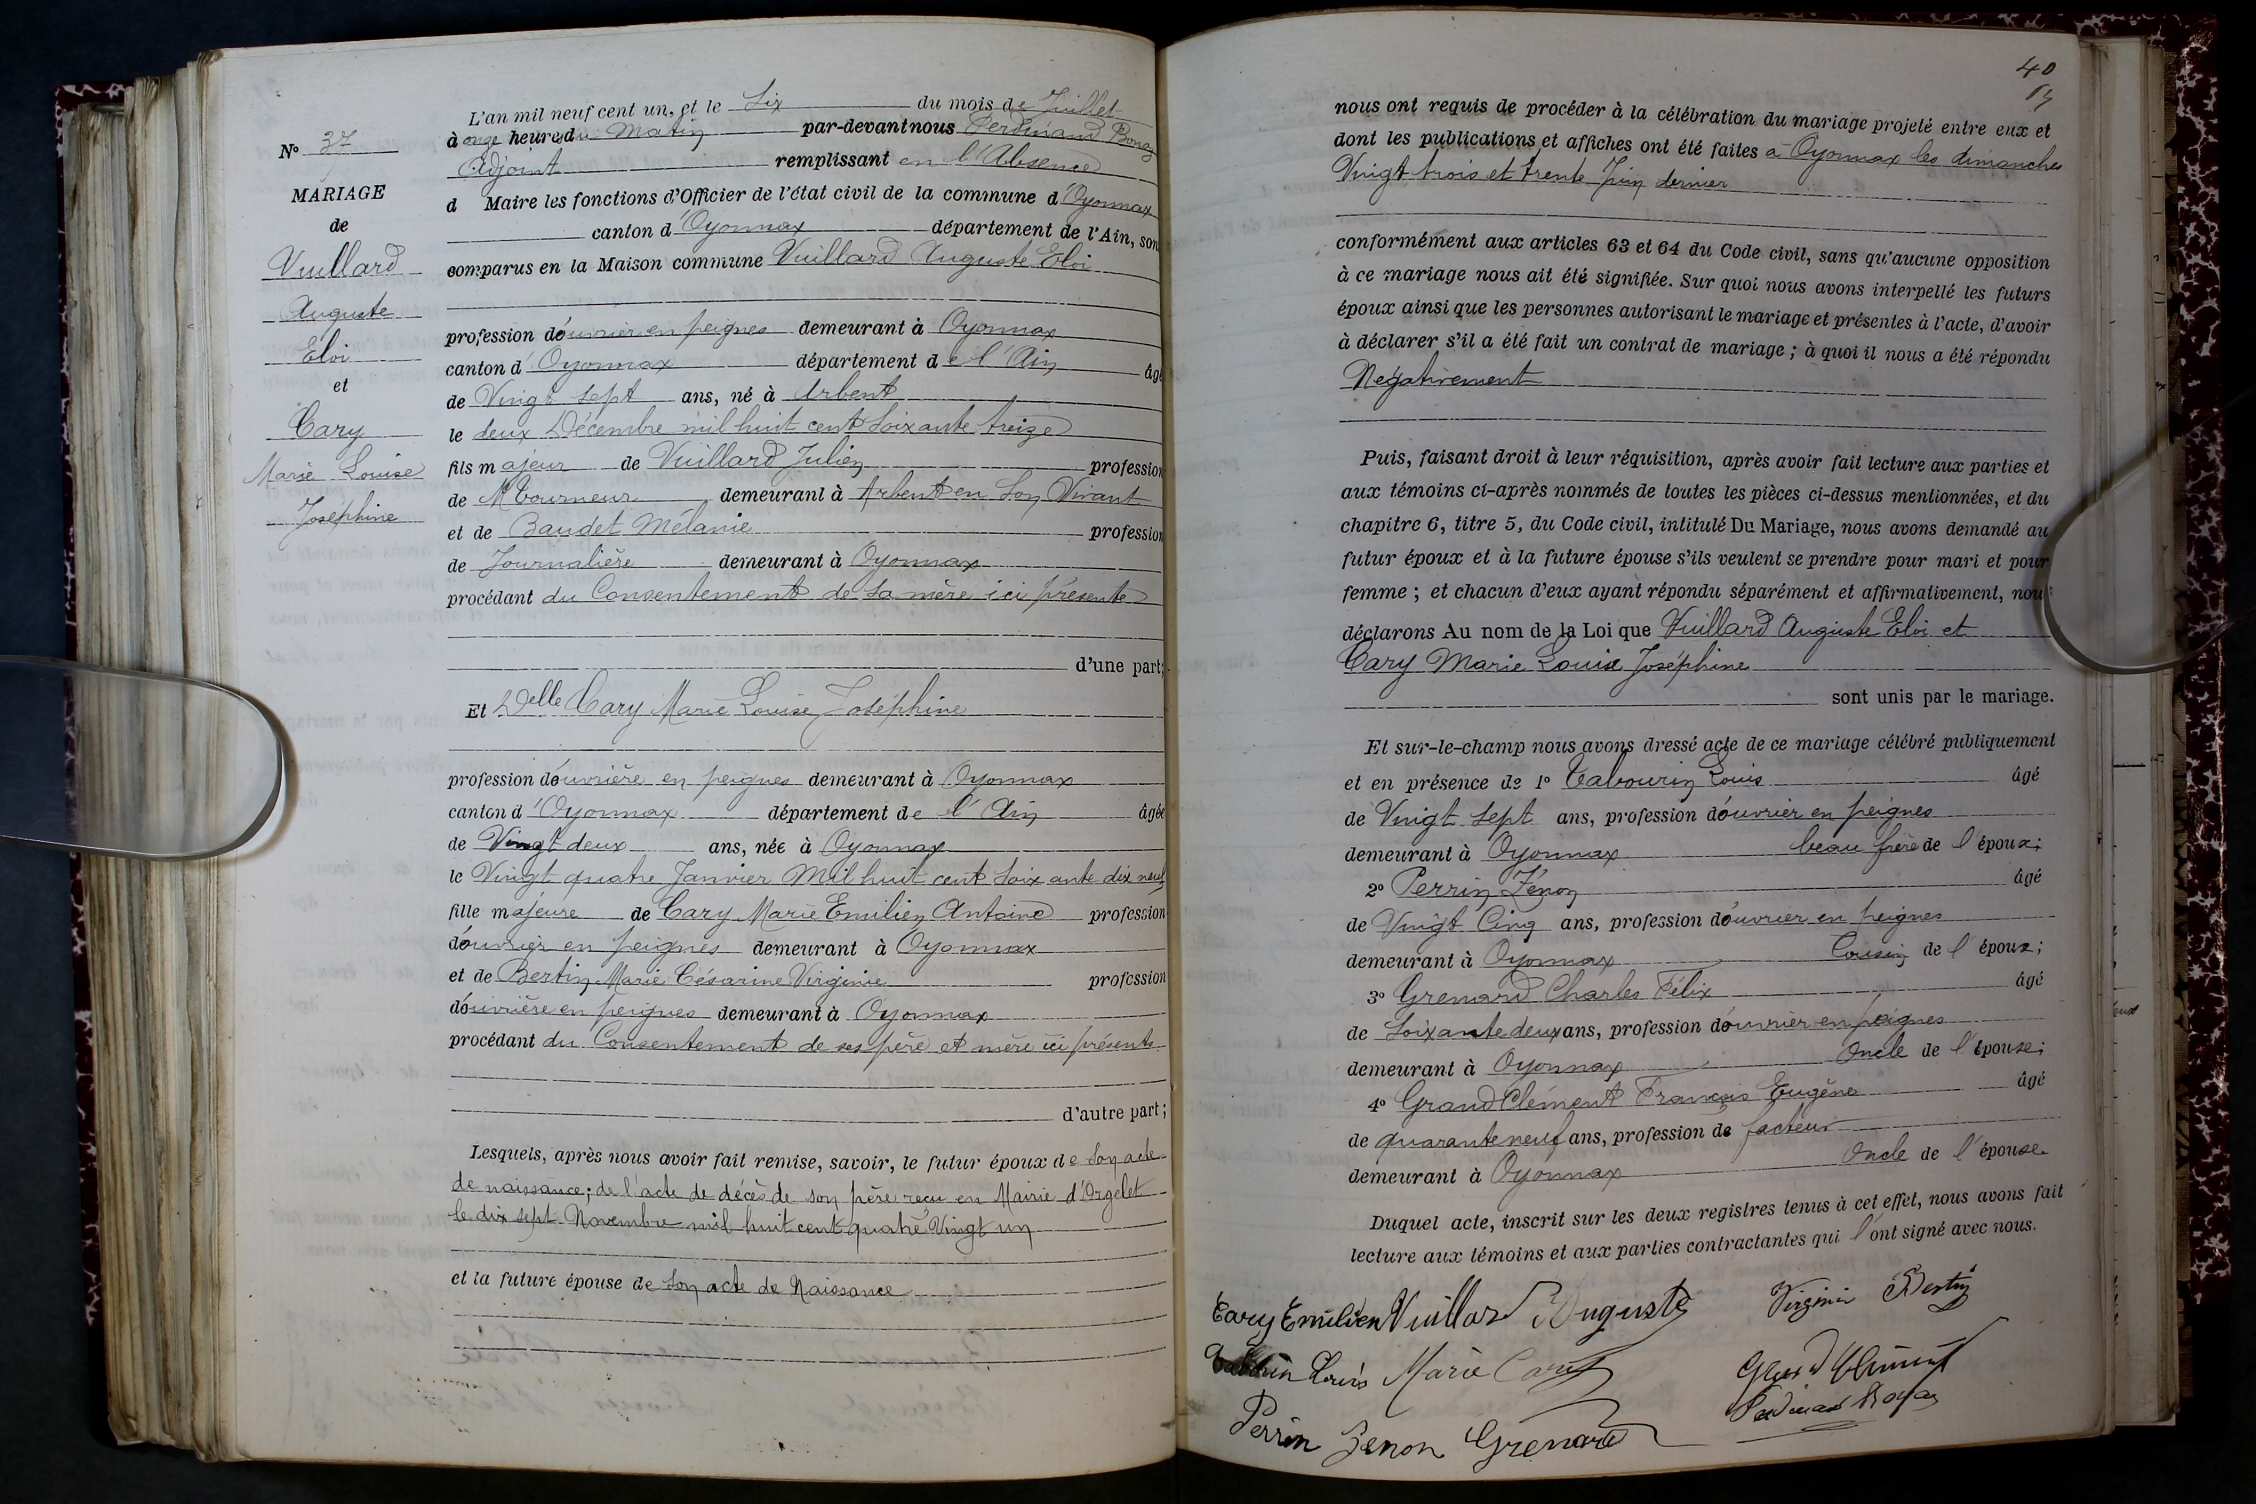 N° 37
MARIAGE
de
Vuillard
Auguste
Eloi
et
Cary
Marie Louise
Joséphine
L'an mil neuf cent un, et le Six du mois de Juillet
à onze heures du Matin par-devant nous Ferdinand
Adjoint remplissant en l'Absence
d Maire les fonctions d'Officier de l'état civil de la commune d'Oyonnax
canton d'Oyonnax département de l'Ain, son
comparus en la Maison commune Vuillard Auguste Eloi
profession d'ouvrier en peignes demeurant à Oyonnax
canton d'Oyonnax département de l'Ain âgé
de Vingt sept ans, né à Arbent
le deux Décembre mil huit cent soixante treize
fils majeur de Vuillard Julien profession
de Me tourneur demeurant à Arbent en son Vivant
et de Baudet Mélanie profession
de Journalière demeurant à Oyonnax
procédant du Consentement de sa mère ici présente
d'une part;
Et Delle Cary Marie Louise Joséphine
profession d'ouvrière en peignes demeurant à Oyonnax
canton d'Oyonnax département de l'Ain âgée
de Vingt deux ans, née à Oyonnax
le Vingt quatre Janvier Mil huit cent soixante dix neuf
fille majeure de Cary Marie Emilien Antoine profession
d'ouvrier en peignes demeurant à Oyonnax
et de Bertin Marie Césarine Virginie profession
d'ouvrière en peignes demeurant à Oyonnax
procédant du Consentement de ses père et mère ici présents
d'autre part;
Lesquels, après nous avoir fait remise, savoir, le futur époux de son acte
de naissance; de l'acte de décès de son père reçu en Mairie d'Orgelet
le dix sept Novembre mil huit cent quatre Vingt un
et la future épouse de son acte de Naissance
40
nous ont requis de procéder à la célébration du mariage projeté entre eux et
dont les publications et affiches ont été faites à Oyonnax les dimanches
Vingt trois et trente Juin dernier
conformément aux articles 63 et 64 du Code civil, sans qu'aucune opposition
à ce mariage nous ait été signifiée. Sur quoi nous avons interpellé les futurs
époux ainsi que les personnes autorisant le mariage et présentes à l'acte, d'avoir
à déclarer s'il a été fait un contrat de mariage; à quoi il nous a été répondu
Négativement
Puis, faisant droit à leur réquisition, après avoir fait lecture aux parties et
aux témoins ci-après nommés de toutes les pièces ci-dessus mentionnées, et du
chapitre 6, titre 5, du Code civil, intitulé Du Mariage, nous avons demandé au
futur époux et à la future épouse s'ils veulent se prendre pour mari et pour
femme; et chacun d'eux ayant répondu séparément et affirmativement, nous
déclarons Au nom de la Loi que Vuillard Auguste Eloi et
Cary Marie Louise Joséphine
sont unis par le mariage.
Et sur-le-champ nous avons dressé acte de ce mariage célébré publiquement
et en présence de 1° Tabourin Louis âgé
de Vingt sept ans, profession d'ouvrier en peignes
demeurant à Oyonnax beau frère de l'époux;
2° Perrin Zénon âgé
de Vingt Cinq ans, profession d'ouvrier en peignes
demeurant à Oyonnax Cousin de l'époux;
3° Grenard Charles Félix âgé
de Soixante deux ans, profession d'ouvrier en peignes
demeurant à Oyonnax Oncle de l'épouse;
4° GrandClément François Eugène âgé
de quarante neuf ans, profession de facteur
demeurant à Oyonnax Oncle de l'épouse
Duquel acte, inscrit sur les deux registres tenus à cet effet, nous avons fait
lecture aux témoins et aux parties contractantes qui l'ont signé avec nous.
Cary Emilien Vuillard Auguste Virginie Bertin
Louis Marie Cary GrandClément
Perrin Zenon Grenard Ferdinand